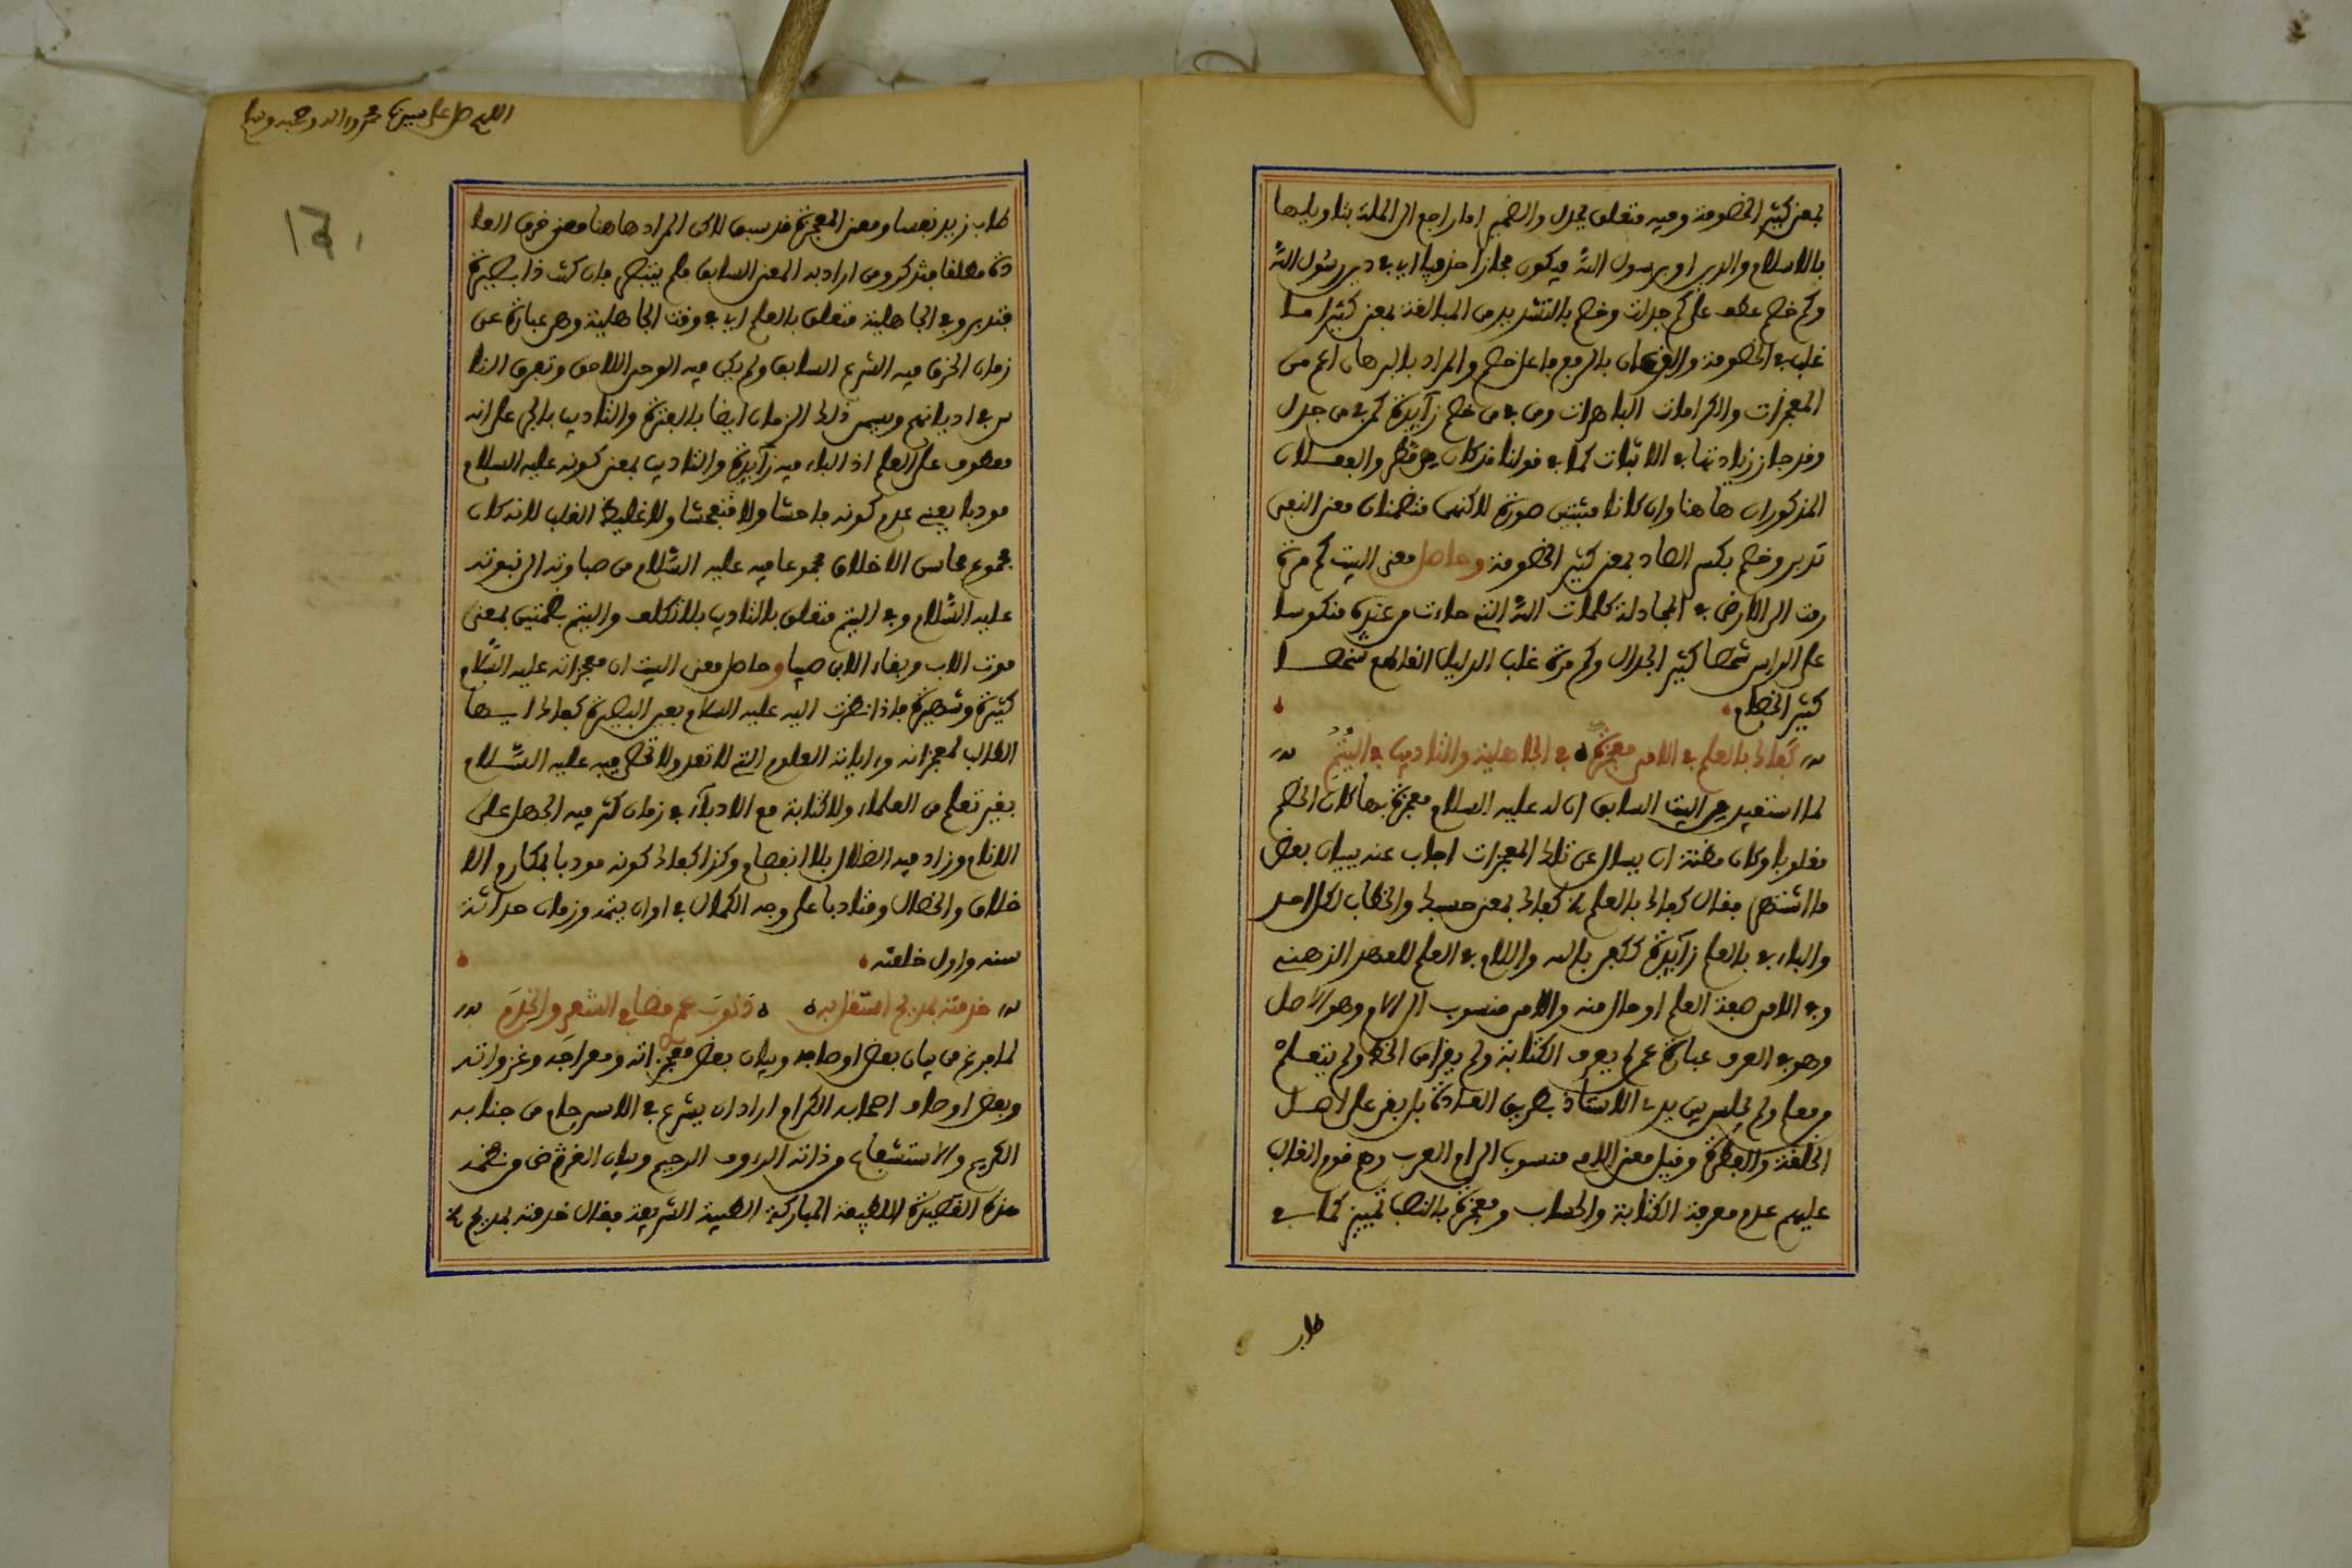 بمعنى كثير الخصومة وفيه متعلق بجدل والضمير اما راجع الى الملة بتاويلها
بالاسلام والدين او برسول الله فيكون مجازا حذفيا اي في دين رسول الله
وكم خصم عطف على كم جدلت وخصم بالتشديد من المبالغة بمعنى كثيرا ما
غلب في الخصومة والبرهان بالرفع فاعل خصم والمراد بالبرهان اعم من
المعجزات والكرامات الباهرات ومن في من خصم زآيدة كمن في من جدل
وقد جاز زيادتها في الاثبات كما في قولنا قد كان من مطر والفعلان
المذكوران هاهنا وان كانا مثبتين صورة لاكنهما متضمنان معنى النفي
تدبر وخصم بكسر الصاد بمعنى كثير الخصومة وحاصل معنى البيت كم مرة
رمت الى الارض في المجادلة كلمات الله التي جاءت من عنده منكوسا
على الراس شخصا كثير الجدال وكم مرة غلب الدليل القاطع شخصا
كثير الخصام
كفاك بالعلم في الامي معجزة في الجاهلية والتاديب في اليتم
لما استفيد من البيت السابق ان له عليه السلام معجزة بها كان الخصم
مغلوبا وكان مظنة ان يسال عن تلك المعجزات اجاب عنه ببيان بعض
ما اشتهر فقال كفاك بالعلم الخ كفاك بمعنى حسبك والخطاب لكل احد
والباء في بالعلم زآيدة ككفى بالله واللام في العلم للعهد الذهني
وفي الامي صفة العلم او حال منه والامي منسوب الى الام وهو الاصل
وهو في العرف عبارة عمن لم يعرف الكتابة ولم يقرا من الخط ولم يتعلم
من معلم ولم يجلس بين يدي الاستاذ بطريق العادة بل بقي على اصل
الخلقة والفطرة وقيل معنى الامي منسوب الى ام العرب وهم قوم الغالب
عليهم عدم معرفة الكتابة والحساب ومعجزة بالنصب تمييز كما في
طاب
اللهم صل على سيدنا محمد واله وصحبه وسلم
طاب زيد نفسا ومعنى المعجزة قد سبق لاكن المراد هاهنا معنى خرق العا
دة مطلقا فتذكر ومن اراد به المعنى السابق فلم ينتظر فان كنت ذا بصيرة
فتدبر وفي الجاهلية متعلق بالعلم اي في وقت الجاهلية وهي عبارة عن
زمان اخترق فيه الشرع السابق ولم يكن فيه الوحي اللاحق وتفرق النا
س في اديانهم ويسمى ذلك الزمان ايضا بالفترة والتاديب بالجر على انه
معطوف على العلم اذ الباء فيه زآيدة والتاديب بمعنى كونه عليه السلام
مودبا يعني عدم كونه فاحشا ولا متفحشا ولا غليظ القلب لانه كان
مجموع محاسن الاخلاق مجموعا فيه عليه السلام من صباوته الى نبوته
عليه السلام وفي اليتم متعلق بالتاديب بلا تكلف واليتم بضمتين بمعنى
موت الاب وبقاء الابن صبيا وحاصل معنى البيت ان معجزاته عليه السلام
كثيرة وشهيرة فاذا نظرت اليه عليه السلام بعين البصيرة كفاك ايها
الطالب لمعجزاته وءاياته العلوم التي لا تعد ولا تحصر فيه عليه السلام
بغير تعلم من العلماء ولا كتابة مع الادبآء في زمان كثر فيه الجهل على
الانام وزاد فيه الضلال بلا انفصام وكذا كفاك كونه مودبا بمكارم الا
خلاق والخصال ومتادبا على وجه الكمال في اوان يتمه وزمان حداثة
سنه واول خلقته
خدمته بمديح استقيل به ذنوب عمر مضى في الشعر والخدم
لما فرغ من بيان بعض اوصافه وبيان بعض معجزاته ومعراجه وغزواته
وبعض اوصاف اصحابه الكرام اراد ان يشرع في الاسترحام من جنابه
الكريم والاستشفاع من ذاته الرءوف الرحيم وبيان الغرض من نظمه
هذه القصيدة اللطيفة المباركة الطيبة الشريفة فقال خدمته بمديح الخ